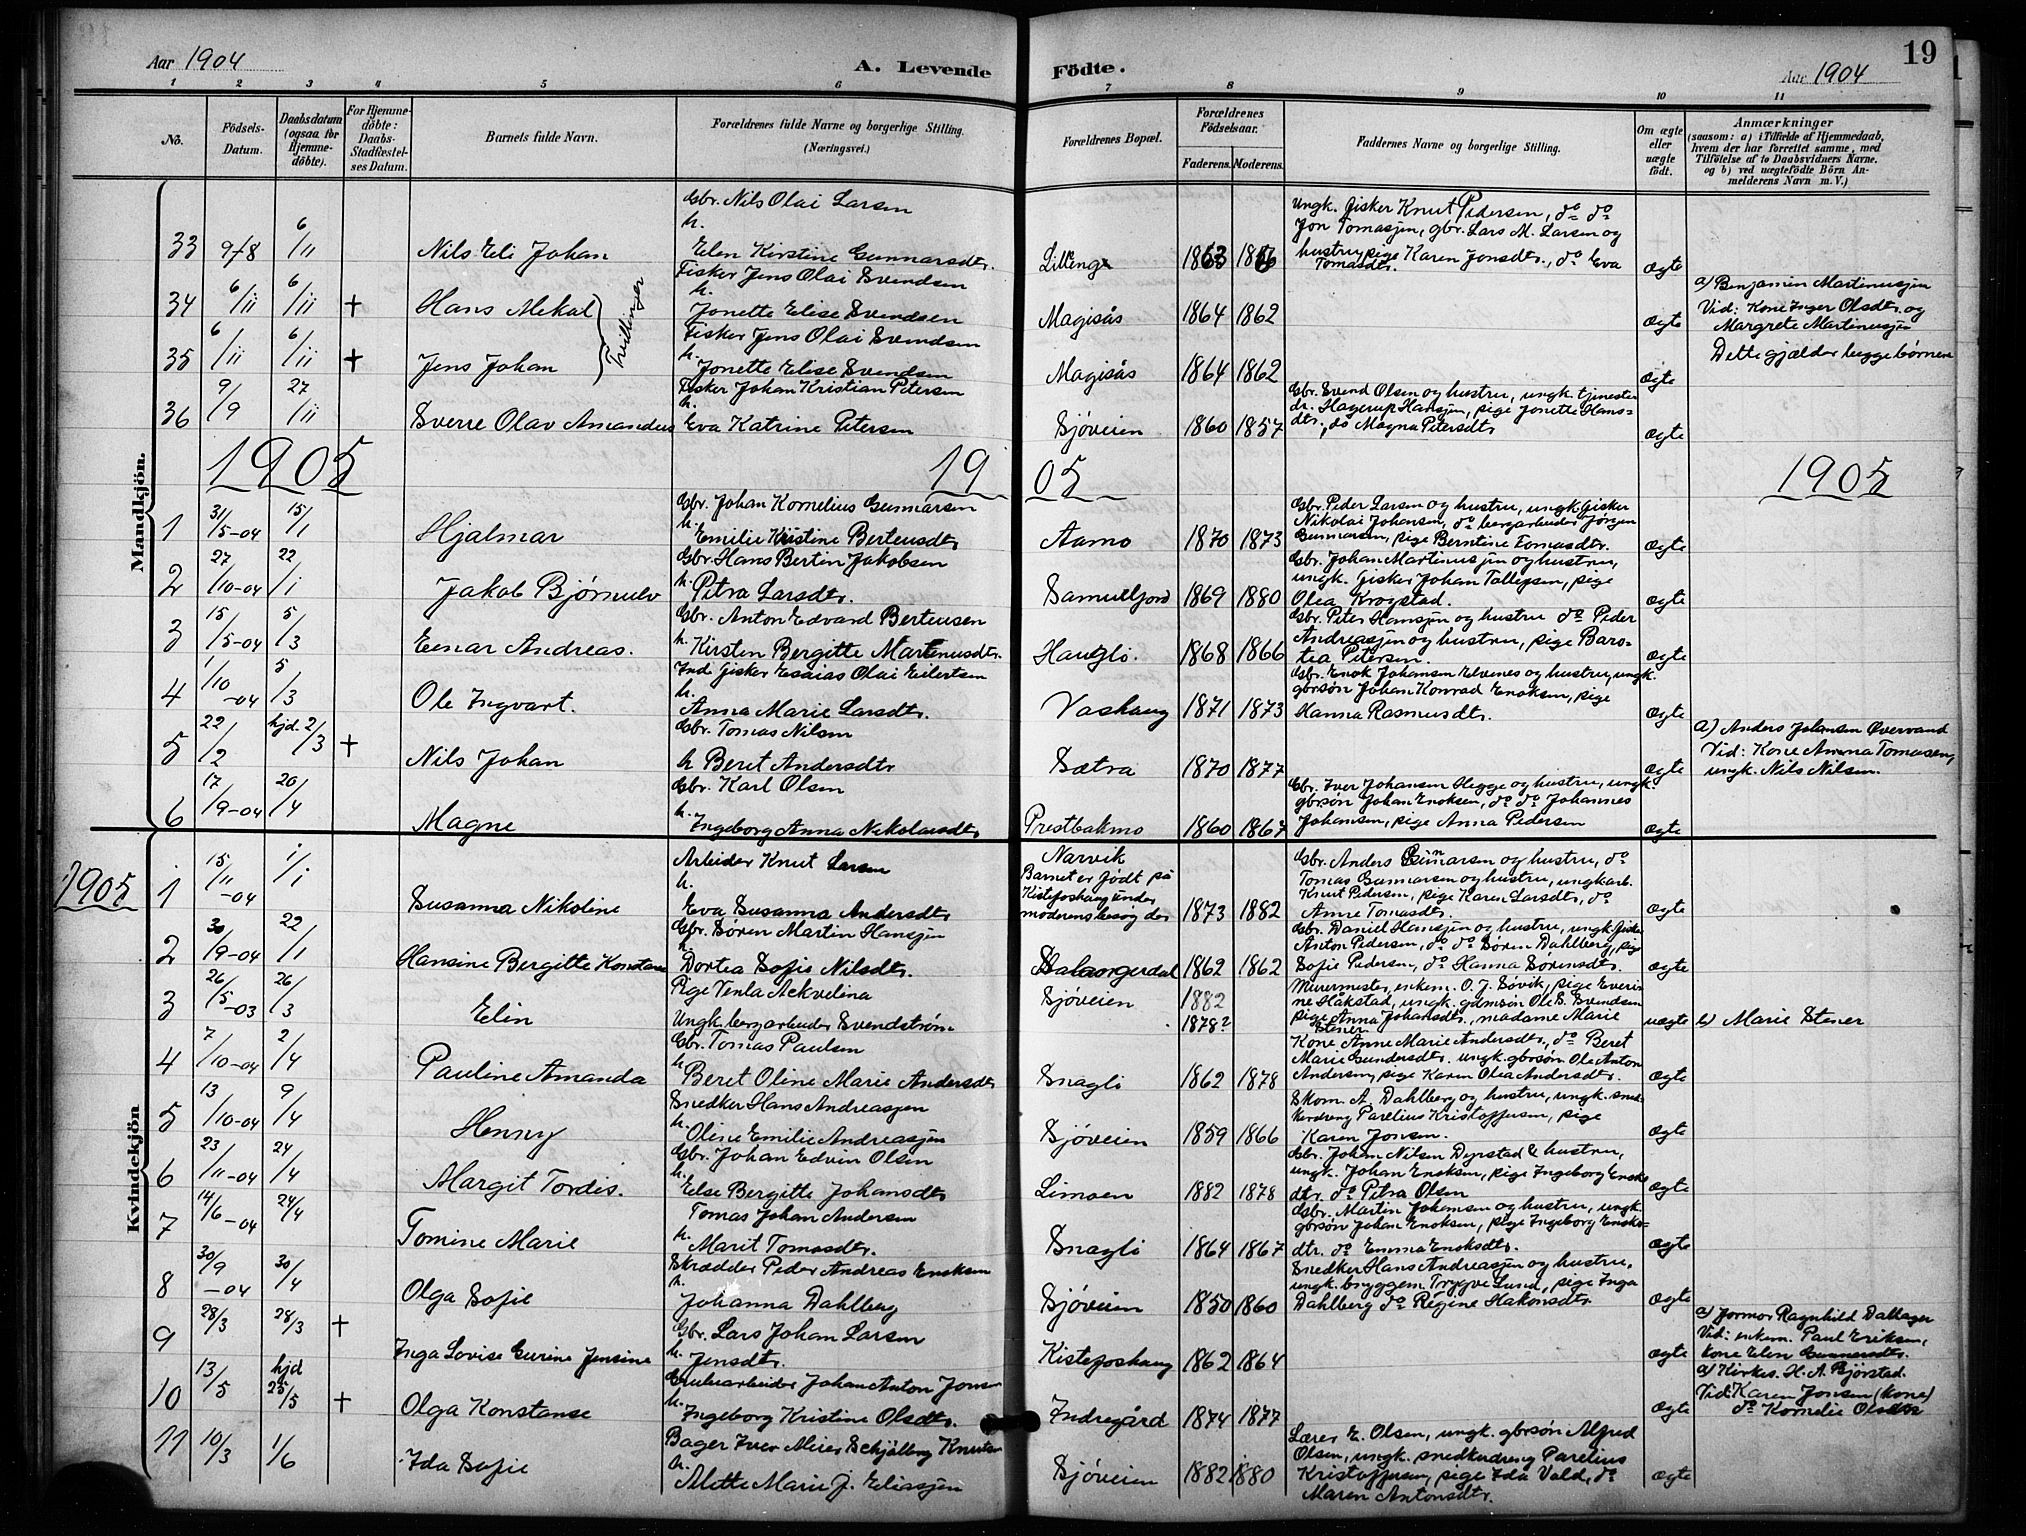 Aar 1904
A. Levende Födte.
Aar 1904
19
1 2 3 4 5 6 7 8 9 10 11
No.
Födsels-Datum.
Daabsdatum (ogsaa for Hjemmedöbte).
For Hjemmedöbte: Daabs-Stadfæstelses Datum.
Barnets fulde Navn.
Forældrenes fulde Navne og borgerlige Stilling. (Næringsvei.)
Forældrenes Bopæl.
Forældrenes Födselsaar.
Faderens. Moderens.
Faddernes Navne og borgerlige Stilling.
Om ægte eller uægte födt.
Anmærkninger
(saasom: a) i Tilfælde af Hjemmedaab, hvem der har forrettet samme, med Tilföielse af to Daabsvidners Navne. og b) ved uægtefödte Börn Anmelderens Navn m. V.)
Mandkjön.
33 9/8 6/11 Nils Eli Johan
Gbr. Nils Olai Larsen
h. Elen Kirstine Gunnarsdtr.
Lilleng 1863
Ungk. Fisker Knut Pedersen, do do
Jon Tomasjen, gbr. Lars M. Larsen og
hustru, pige Karen Jonsdtr., do Eva
Tomasdtr.
ægte
34 6/11 6/11 + Hans Mekal
Tvillinger
Fisker Jens Olai Svendsen
h. Jonette Elise Svendsen
Magisås 1864 1862 ægte
a) Benjamin Martinusjen
Vid: Kone Inger Olsdtr. og
Margrete Martinusjen
Dette gjælder begge børnene
35 6/11 6/11 + Jens Johan
Fisker Jens Olai Svendsen
h. Jonette Elise Svendsen
Magisås 1864 1862 ægte
36 9/9 27/11 Sverre Olav Amandus
Fisker Johan Kristian Petersen
h. Eva Katrine Petersen
Sjøveien 1860 1857
Gbr. Svend Olsen og hustru, ungk. tjenester
dr. Hagerup Hansjen, pige Jonette Hans-
dtr., do Magna Petersdtr.
ægte
1905 1905 1905
1 31/5-04 15/1 Hjalmar
Gbr. Johan Kornelius Gunnarsen
h. Emilie Kristine Berteusdtr.
Aamo 1870 1873
Gbr. Peder Larsen og hustru, ungk. fisker
Nikolai Johansen, do bergarbeider Jørgen
Gunnarsen, pige Berntine Tomasdtr.
ægte
2 27/10-04 22/1 Jakob Bjørnulv
Gbr. Hans Bertin Jakobsen
h. Petra Larsdtr.
Samuelfjord 1869 1880
Gbr. Johan Martinusjen og hustru,
ungk. Fisker Johan Tollefsen, pige
Olea Krogstad.
ægte
3 15/5-04 5/3 Einar Andreas.
Gbr. Anton Edvard Berteusen
h. Kirsten Bergitte Martinusdtr.
Hauglì. 1868 1866
Gbr. Peter Hansjen og hustru do Peder
Andreasjen og hustru, pige Baro-
tea Petersen.
ægte
4 1/10-04 5/3 Ole Ingvart.
Ind. Fisker Esaias Olai Eilertsen
h. Anna Marie Larsdtr.
Vashaug 1871 1873
Gbr. Enok Johansen Elvenes og hustru, ungk.
gbrsøn Johan Konrad Enoksen, pige
Hanna Rasmusdtr.
ægte
5 22/2 hjd. 2/3 + Nils Johan
Gbr. Tomas Nilsen
h Beret Andersdtr
Sætra 1870 1877 ægte
a) Anders Johansen Overvand
Vid: Kone Anna Tomasen,
ungk. Nils Nilsen.
6 17/9-04 20/4 Magne
Gbr. Karl Olsen
h. Ingeborg Anna Nikolaisdtr.
Prestbakmo 1860 1867
Gbr. Iver Johansen Hegge og hustru, ungk.
gbrsøn Johan Enoksen, do do Johannes
Johansen, pige Anna Pedersen
ægte
1905
Kvindekjön
1 15/11-04 1/1 Susanna Nikoline
Arbeider Knut Larsen
h. Eva Susanna Andersdtr.
Narvik
Barnet er født på
Kistefoshaug under
moderens besøg der
1873 1882
Gbr. Anders Gunnarsen og hustru, do
Tomas Gunnarsen og hustru, ungk arb.
Knut Pedersen, pige Karen Larsdtr., do
Anne Tomasdtr.
ægte
2 30/9-04 22/1 Hansine Bergitte Konstanse
Gbr. Søren Martin Hansjen
h. Dortea Sofie Nilsdtr.
Salangerdal 1862 1862
Gbr. Daniel Hansjen og hustru, ungk. fisker
Anton Pedersen, do do Søren Dahlberg, pige
Sofie Pedersen, do Hanna Sørensdtr.
ægte
3 26/5-03 26/3 Elin
Pige Venla Ackvelina
Ungk. bergarbeider Svendstrøm
Sjøveien 1882 1878?
Murermester, enkem. O. J. Søvik, pige Everi-
ne Håkstad, ungk. gdmsøn Ole S. Svendsen
pige Anna Johansdtr., madame Marie
Stener
uægte b) Marie Stener
4 7/10-04 2/4 Pauline Amanda
Gbr. Tomas Paulsen
h Beret Oline Marie Andersdtr
Snagli 1862 1878
Kone Anne Marie Andersdtr., do Beret
Marie Gundersdtr. ungk. gbrsøn Ole Anton
Andersen, pige Karen Olea Andersdtr.
ægte
5 13/10-04 9/4 Henny
Snedker Hans Andreasjen
h. Oline Emilie Andreasjen
Sjøveien 1859 1866
Skom. A. Dahlberg og hustru, ungk. sned-
kerdreng Parelius Kristoffersen, pige
Karen Jonsen.
ægte
6 23/11-04 24/4 Margit Tordis.
Gbr. Johan Edvin Olsen
h. Else Bergitte Johansdtr
Limoen 1882 1878
Gbr. Johan Nilsen Dyrstad & hustru,
ungk. Johan Enoksen, pige Ingeborg Enoks-
dtr. do Petra Olsen
ægte
7 14/6-04 24/4 Tomine Marie
Tomas Johan Andersen
h. Marit Tomasdtr.
Snagli 1864 1867
Gbr. Martin Johansen og hustru, ungk.
gbrsøn Johan Enoksen, pige Ingeborg Enoks-
dtr. do Emma Enoksdtr.
ægte
8 30/9-04 30/4 Olga Sofie
Skrædder Peder Andreas Enoksen
h. Johanna Dahlberg
Sjøveien 1850 1860
Snedker Hans Andreasjen og hustru,
ungk. bryggem. Trygve Lund, pige Inga
Dahlberg do Regine Hakonsdtr.
ægte
9 28/3 28/3 + Inga Lovise Gurine Jensine
Gbr. Lars Johan Larsen
h. Jensdtr.
Kistefoshaug 1862 1864 ægte
a) Jormor Ragnhild Dallager
Vid: enkem. Paul Eriksen,
kone Elen Gunnarsdtr.
10 13/5 hjd 25/5 + Olga Konstanse
Grubearbeider Johan Anton Jonsen
h. Ingeborg Kristine Olsdtr.
Indregård 1874 1877 ægte
a) Kirkes. H. A. Bjørstad.
Vid: Karen Jonsen (kone)
do Kornelie Olsdtr
11 10/3 1/6 Ida Sofie
Bager Iver Meier Schjølberg Knutsen
h. Alette Marie J. Eliasjen
Sjøveien 1882 1880
Lærer E. Olsen, ungk. gbrsøn Alfred
Olsen, ungk. snedkerdreng Parelius
Kristoffersen, pige Ida Vold, do
Maren Antonsdtr.
ægte